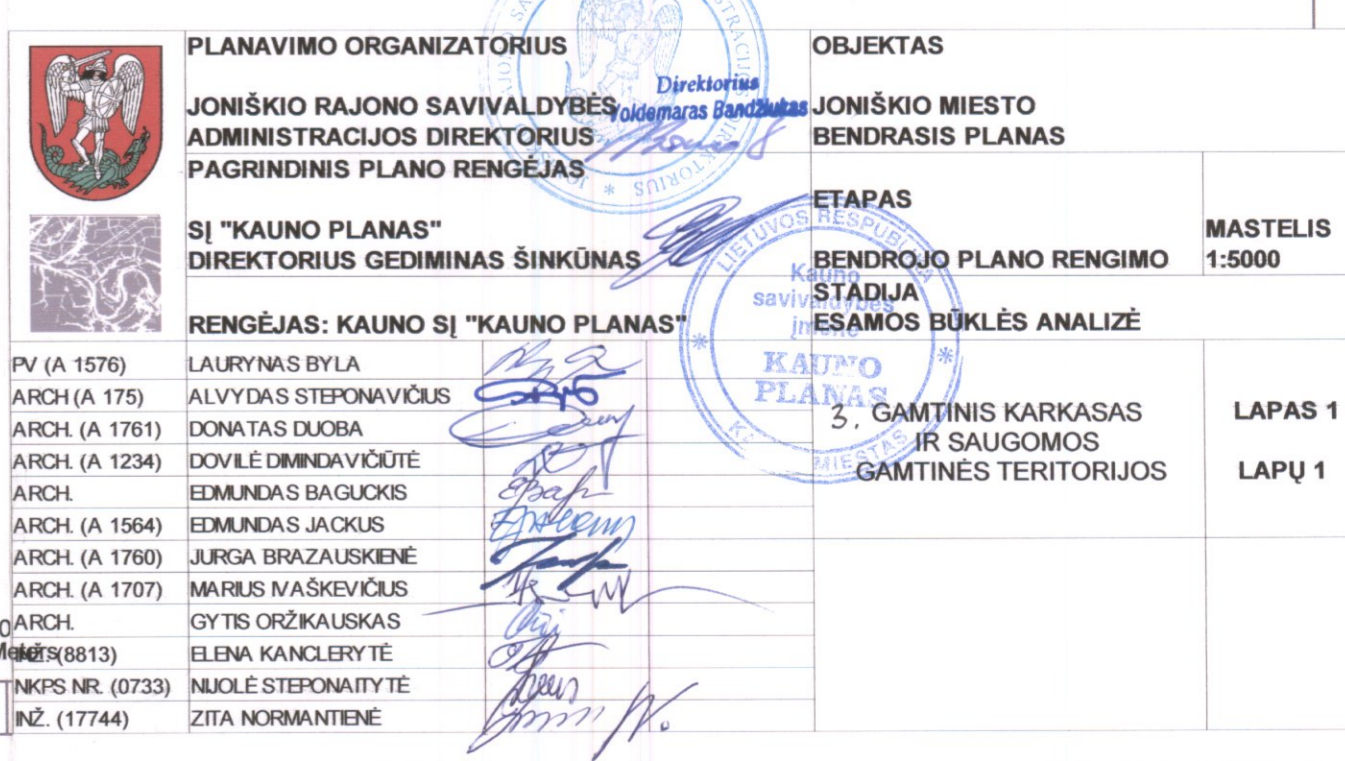 PLANAVIMO ORGANIZATORIUS
JONIŠKIO RAJONO SAVIVALDYBĖS
ADMINISTRACIJOS DIREKTORIUS
Direktorius
Voldemaras Bandžiukas
OBJEKTAS
JONIŠKIO MIESTO
BENDRASIS PLANAS
PAGRINDINIS PLANO RENGĖJAS
SĮ "KAUNO PLANAS"
DIREKTORIUS GEDIMINAS ŠINKŪNAS
ETAPAS
BENDROJO PLANO RENGIMO
MASTELIS
1:5000
RENGĖJAS: KAUNO SĮ "KAUNO PLANAS"
STADIJA
ESAMOS BŪKLĖS ANALIZĖ
LIETUVOS RESPUBLIKA
Kauno
savivaldybės
įmonė
KAUNO
PLANAS
MIESTAS
PV (A 1576) LAURYNAS BYLA
ARCH (A 175) ALVYDAS STEPONAVIČIUS
ARCH. (A 1761) DONATAS DUOBA
ARCH. (A 1234) DOVILĖ DIMINDAVIČIŪTĖ
ARCH. EDMUNDAS BAGUCKIS
ARCH. (A 1564) EDMUNDAS JACKUS
ARCH. (A 1760) JURGA BRAZAUSKIENĖ
ARCH. (A 1707) MARIUS IVAŠKEVIČIUS
ARCH. GYTIS ORŽIKAUSKAS
INŽ. (8813) ELENA KANCLERYTĖ
NKPS NR. (0733) NIJOLĖ STEPONAITYTĖ
INŽ. (17744) ZITA NORMANTIENĖ
0
Meters
3. GAMTINIS KARKASAS
IR SAUGOMOS
GAMTINĖS TERITORIJOS
LAPAS 1
LAPŲ 1